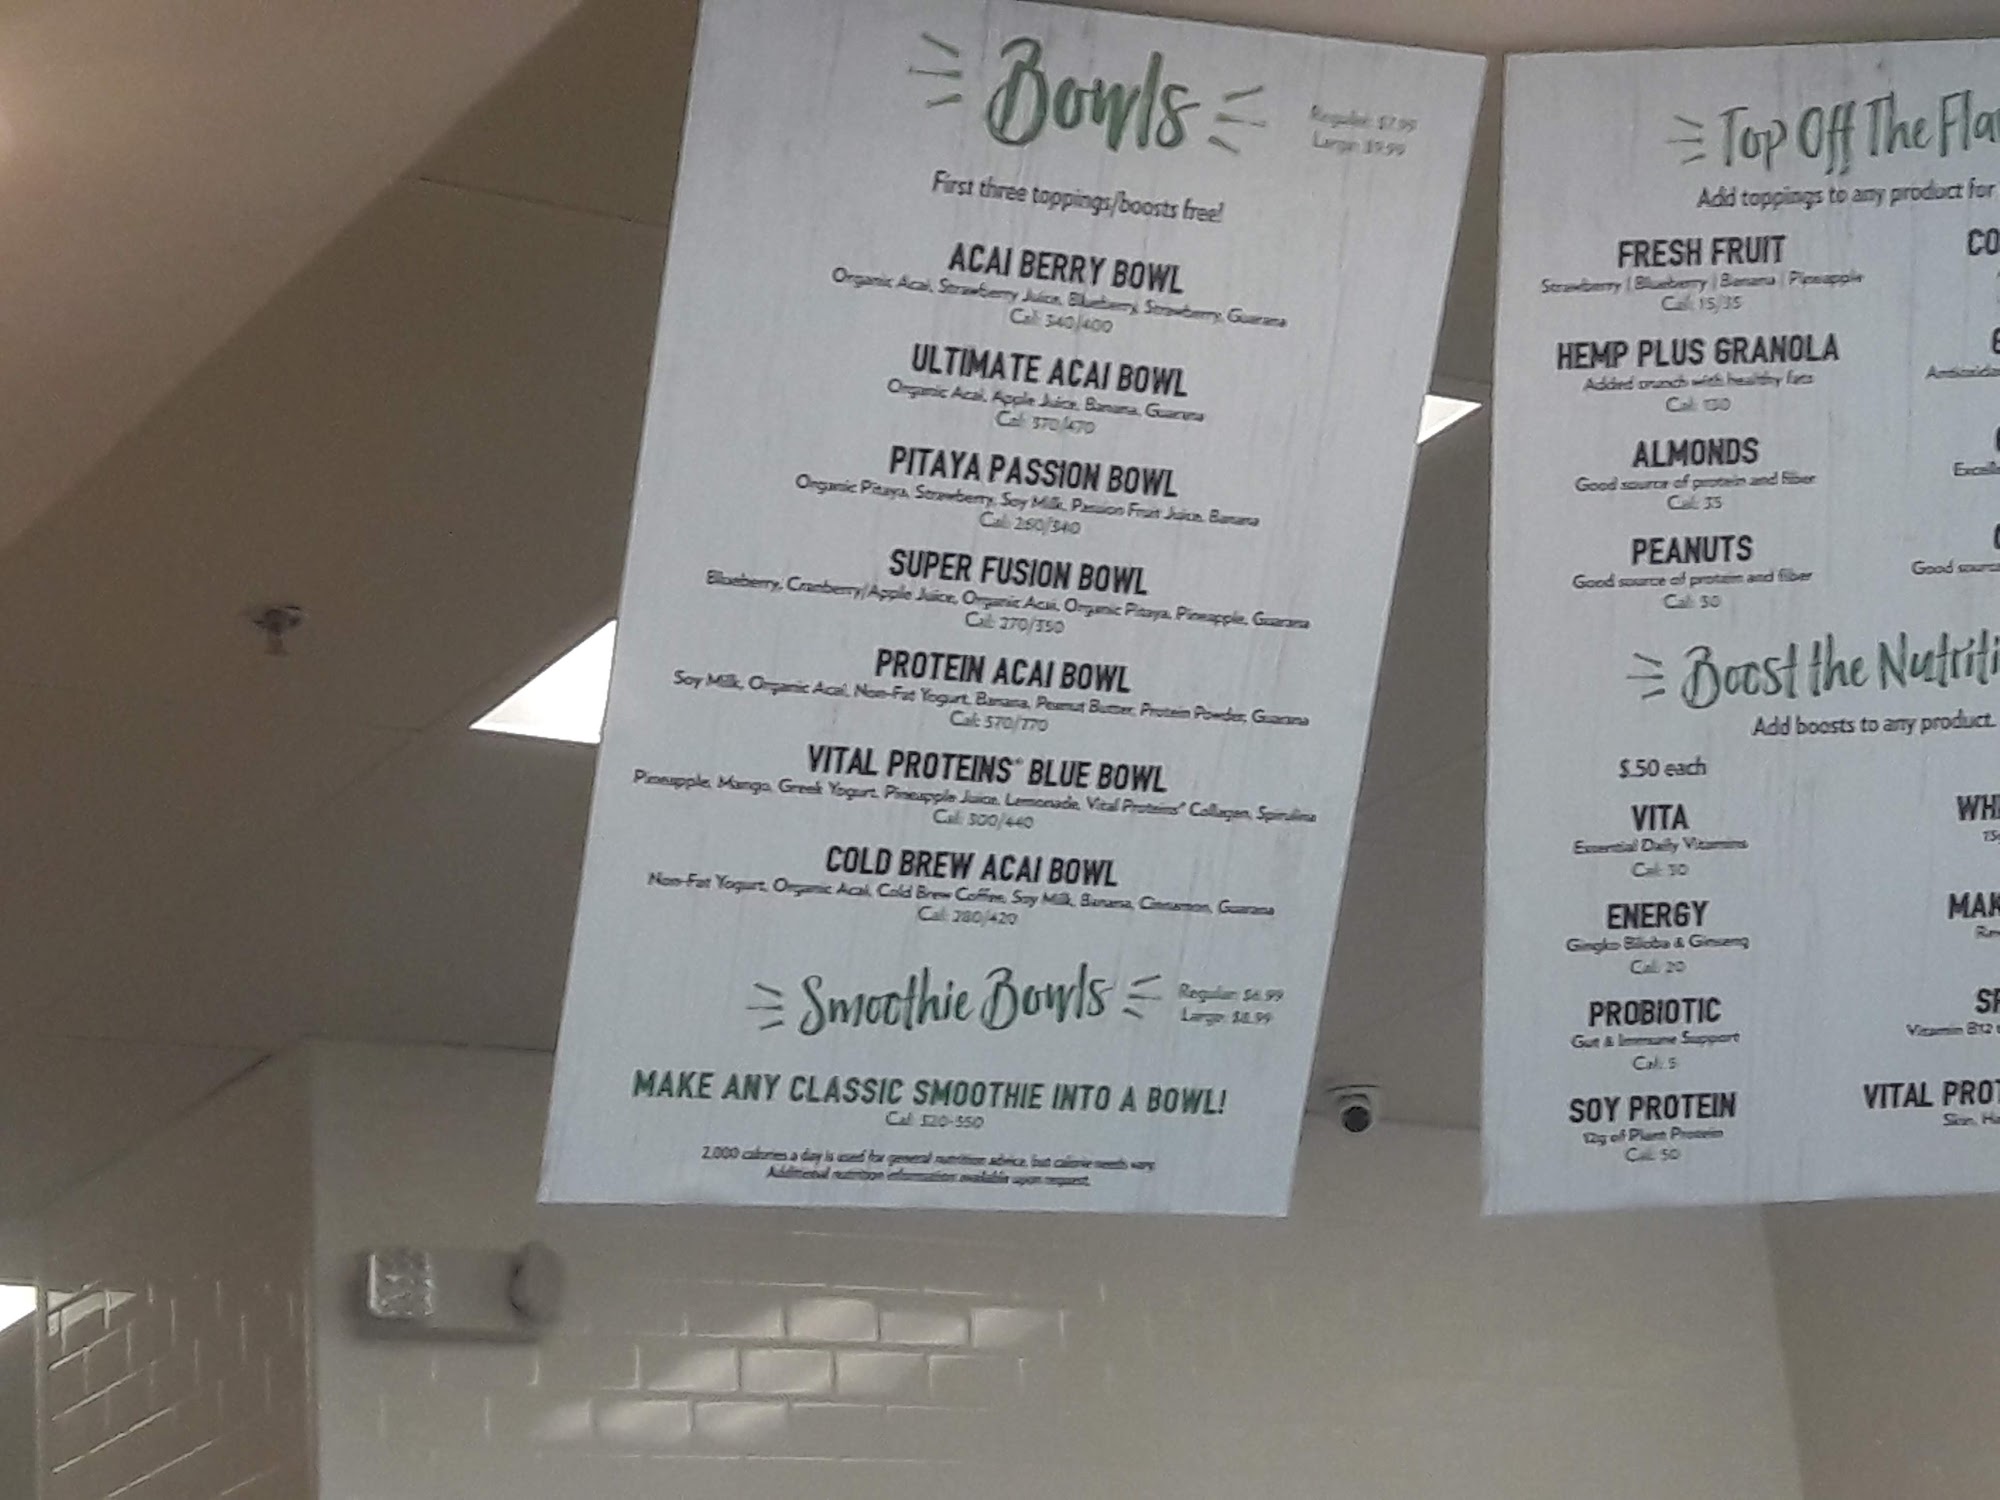 Bowls
Regular: $7.99
Large: $9.99
First three toppings/boosts free!
ACAI BERRY BOWL
Organic Acai, Strawberry Juice, Blueberry, Strawberry, Guarana
Cal: 340/400
ULTIMATE ACAI BOWL
Organic Acai, Apple Juice, Banana, Guarana
Cal: 370/470
PITAYA PASSION BOWL
Organic Pitaya, Strawberry, Soy Milk, Passion Fruit Juice, Banana
Cal: 260/340
SUPER FUSION BOWL
Blueberry, Cranberry/Apple Juice, Organic Acai, Organic Pitaya, Pineapple, Guarana
Cal: 270/350
PROTEIN ACAI BOWL
Soy Milk, Organic Acai, Non-Fat Yogurt, Banana, Peanut Butter, Protein Powder, Guarana
Cal: 570/770
VITAL PROTEINS® BLUE BOWL
Pineapple, Mango, Greek Yogurt, Pineapple Juice, Lemonade, Vital Proteins® Collagen, Spirulina
Cal: 300/440
COLD BREW ACAI BOWL
Non-Fat Yogurt, Organic Acai, Cold Brew Coffee, Soy Milk, Banana, Cinnamon, Guarana
Cal: 280/420
Smoothie Bowls
Regular: $6.99
Large: $8.99
MAKE ANY CLASSIC SMOOTHIE INTO A BOWL!
Cal: 320-550
2,000 calories a day is used for general nutrition advice, but calorie needs vary.
Additional nutrition information available upon request.
Top Off The Fla
Add toppings to any product for
FRESH FRUIT
Strawberry | Blueberry | Banana | Pineapple
Cal: 15/35
CO
HEMP PLUS GRANOLA
Added crunch with healthy fats
Cal: 130
Antioxidan
ALMONDS
Good source of protein and fiber
Cal: 35
Excelle
PEANUTS
Good source of protein and fiber
Cal: 50
Good source
Boost the Nutriti
Add boosts to any product.
$.50 each
VITA
Essential Daily Vitamins
Cal: 30
WHE
15g
ENERGY
Gingko Biloba & Ginseng
Cal: 20
MAK
PROBIOTIC
Gut & Immune Support
Cal: 5
SP
Vitamin B12
SOY PROTEIN
12g of Plant Protein
Cal: 50
VITAL PROT
Skin, Ha